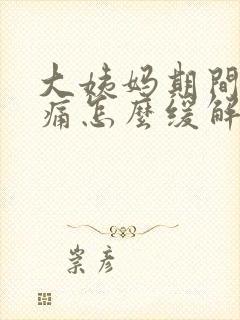 大姨妈期間
痛怎麼缓解
崇彦